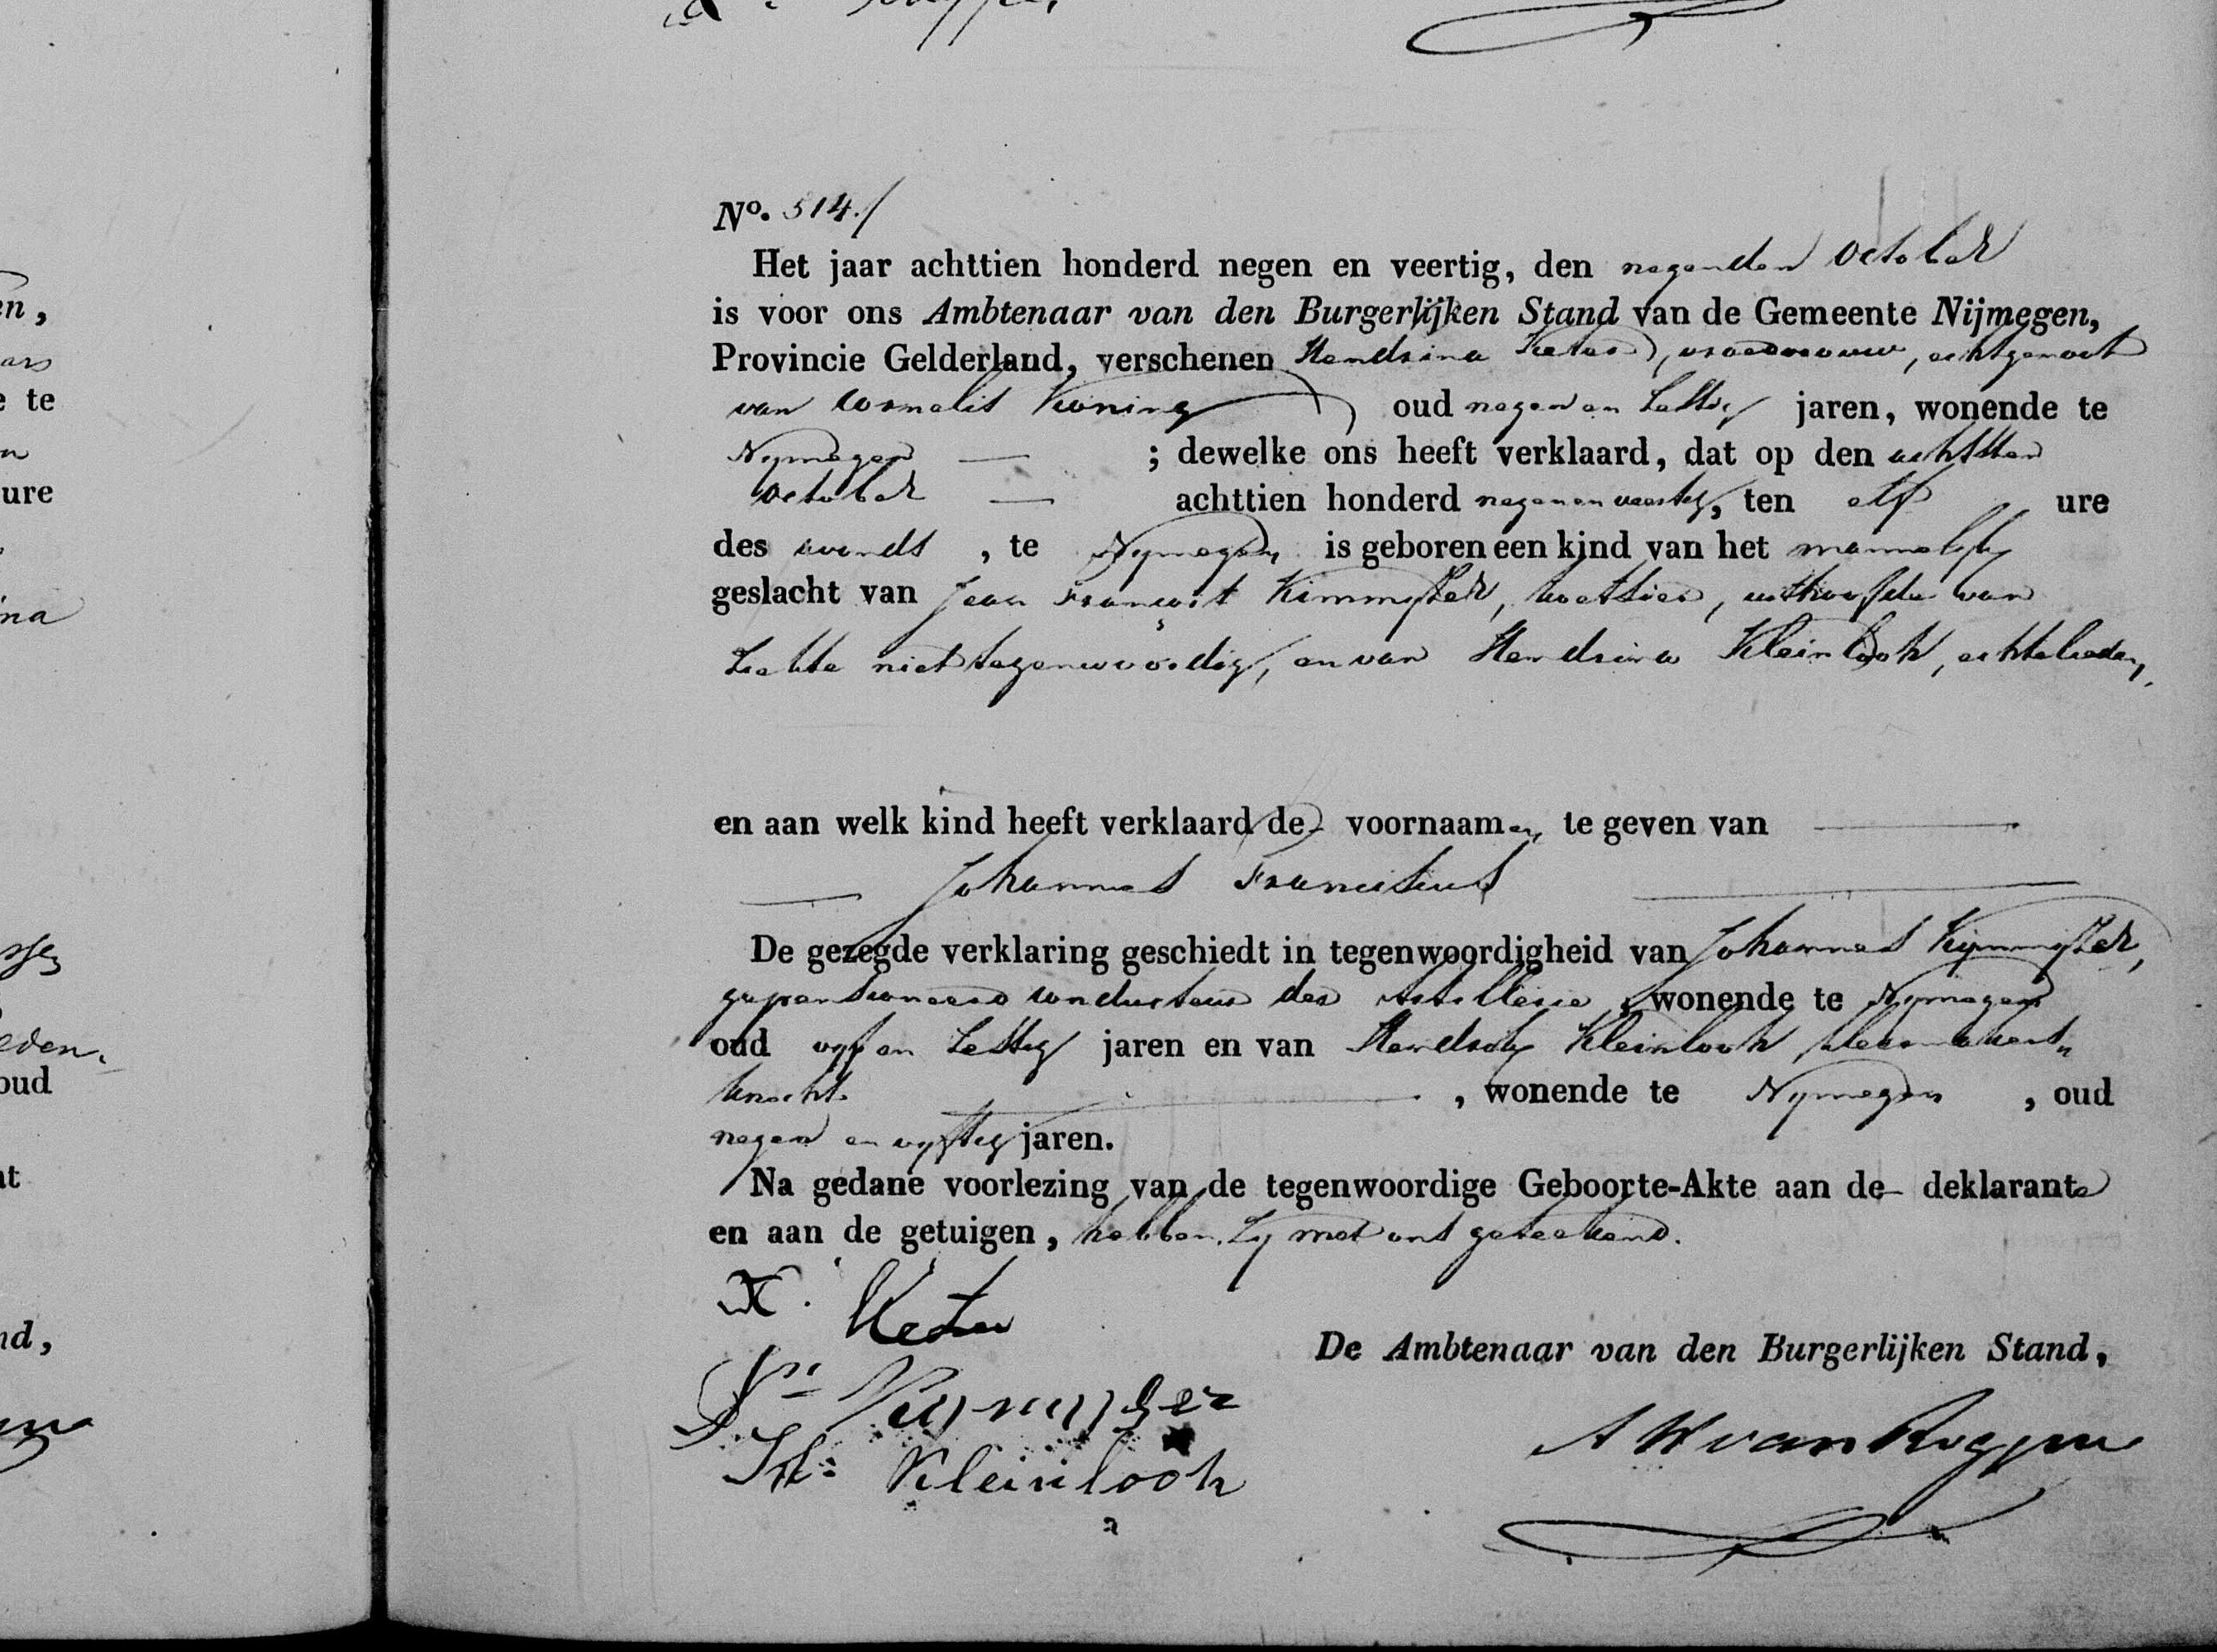 en,
ars
e te
ure
ina
eden.
oud
nt
nd,
N.º 514./
Het jaar achttien honderd negen en veertig, den negenden October
is voor ons Ambtenaar van den Burgerlijken Stand van de Gemeente Nijmegen,
Provincie Gelderland, verschenen Hendrina Keter, vroedvrouw, echtgenoot
van Cornelis Koning oud negen en Sestig jaren, wonende te
Nijmegen — ; dewelke ons heeft verklaard, dat op den achtsten
October — achttien honderd negen en veertig, ten elf ure
des avonds , te Nijmegen is geboren een kind van het mannelijk
geslacht van Jean François Kimmijser, uithoofde van
Ziekte niet tegenwoordig, en van Hendrina Kleinlooh, echtelieden,
en aan welk kind heeft verklaard de voornaamen te geven van —
— Johannes Franciscus —
De gezegde verklaring geschiedt in tegenwoordigheid van Johannes Kijmmijser,
gepensioneerd conducteur der Artillerie , wonende te Nijmegen
oud vijf en Sestig jaren en van Hendrik Kleinlooh, kleermakers„
knecht — , wonende te Nijmegen , oud
negen en vijftig jaren.
Na gedane voorlezing van de tegenwoordige Geboorte-Akte aan de deklarante
en aan de getuigen, hebben Zij met ons geteekend.
Keter
De Ambtenaar van den Burgerlijken Stand,
Kijmmijser
A W van
Kleinlooh